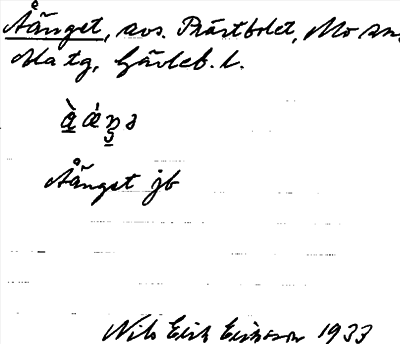 Åänget, avs. Prästbolet, Mo sn,
Ala tg, Gävleb. l.
Åänget jb
Nils Erik Eriksson 1933